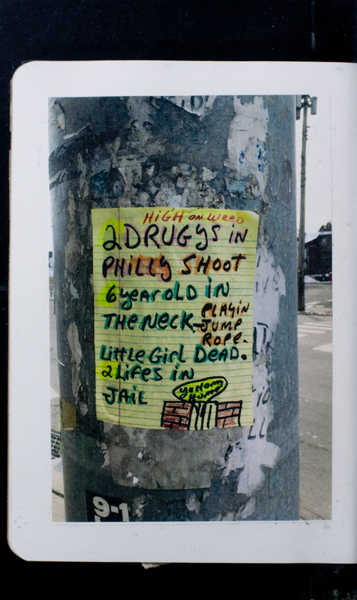 HIGH on WEED
2 DRUGYS iN
PHILLY SHOOT
6 year OLD iN
THE NECK - PLAYiN
JUMP
ROPE.
Little Girl DEAD.
2 LiFES iN
JAiL
9-1